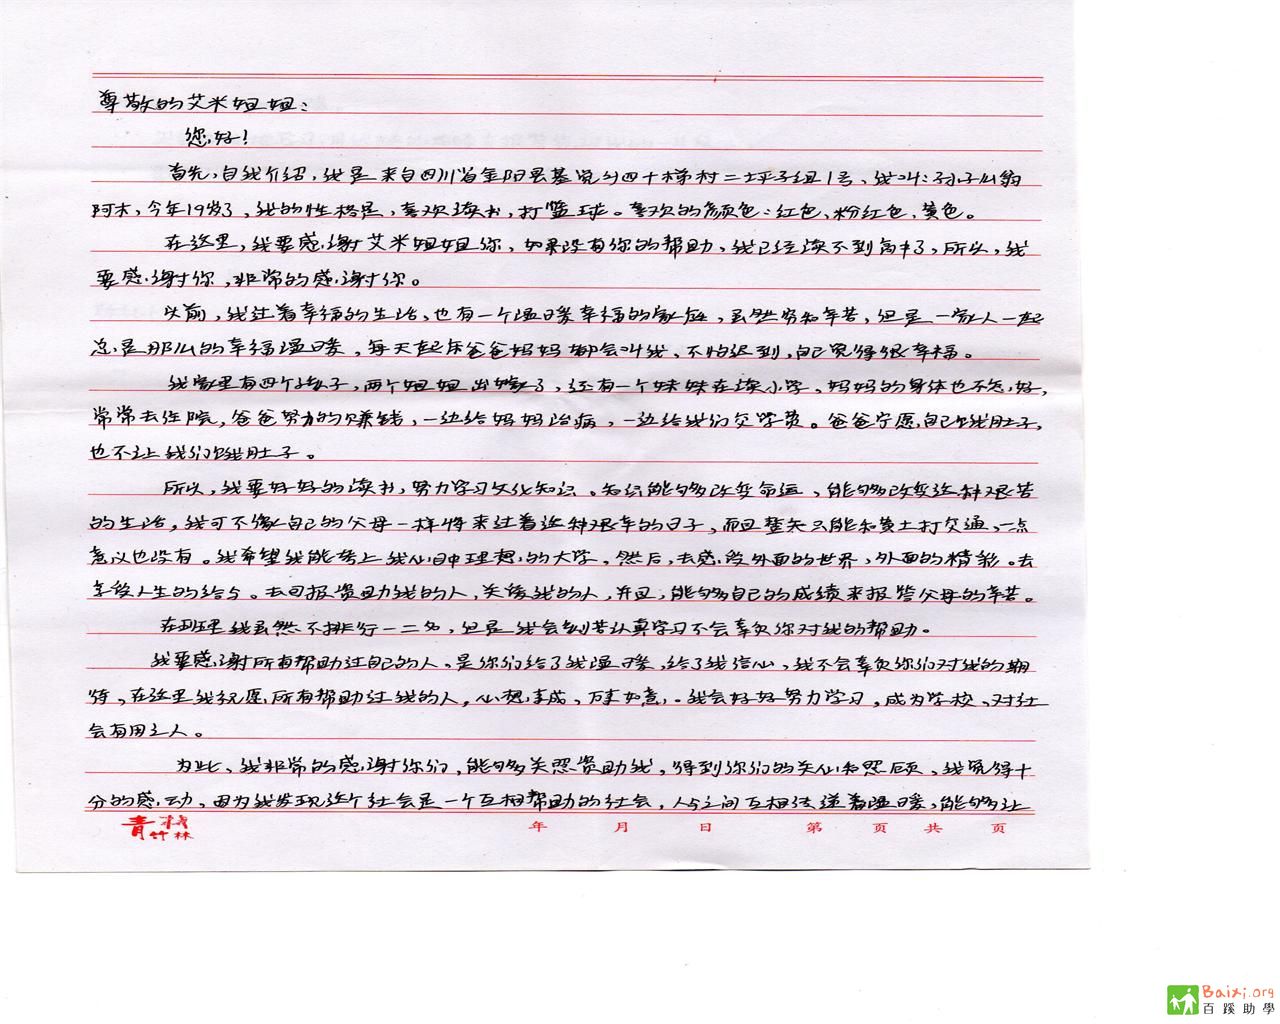 尊敬的艾米姐姐：
您好！
首先，自我介绍，我是来自四川省金阳县基觉乡四十樟村二坪子组1号，我叫：孙子么翁
阿木，今年19岁了，我的性格是，喜欢读书，打篮球。喜欢的颜色：红色、粉红色、黄色。
在这里，我要感谢艾米姐姐你，如果没有你的帮助，我已经读不到高中了，所以，我
要感谢你，非常的感谢你。
以前，我过着幸福的生活，也有一个温暖幸福的家庭，虽然穷和辛苦，但是一家人一起
总是那么的幸福温暖，每天起床爸爸妈妈都会叫我，不怕迟到，自己觉得很幸福。
我家里有四个孩子，两个姐姐出嫁了，还有一个妹妹在读小学，妈妈的身体也不怎好，
常常去住院，爸爸努力的赚钱，一边给妈妈治病，一边给我们交学费。爸爸宁愿自己饿肚子，
也不让我们饿肚子。
所以，我要好好的读书，努力学习文化知识。知识能够改变命运，能够改变这种艰苦
的生活，我可不像自己的父母一样将来过着这种艰辛的日子，而且整天只能和黄土打交道，一点
意义也没有。我希望我能考上我心目中理想的大学，然后，去感受外面的世界，外面的精彩。去
享受人生的给与。去回报资助我的人，关爱我的人，并且，能够多自己的成绩来报答父母的辛苦。
在班里我虽然不排行一二名，但是我会刻苦认真学习不会辜负你对我的帮助。
我要感谢所有帮助过自己的人，是你们给了我温暖，给了我信心，我不会辜负你们对我的期
待，在这里我祝愿所有帮助过我的人，心想事成，万事如意，。我会好好努力学习，成为学校、对社
会有用之人。
为此，我非常的感谢你们，能够多关照资助我，得到你们的关心和照顾，我觉得十
分的感动，因为我发现这个社会是一个互相帮助的社会，人与之间互相传递着温暖，能够让
青竹林 年 月 日 第 页 共 页
Baixi.org
百蹊助學